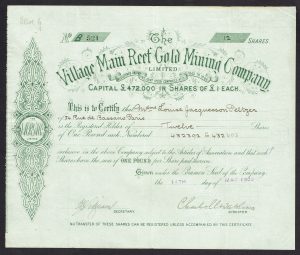 No B 521
12 SHARES
The
Village Main Reef Gold Mining Company
LIMITED
CAPITAL £472,000 IN SHARES OF £1 EACH.
This is to Certify that Louise Jacquesson Peltzer
Paris
is the Registered Holder of Twelve Shares
of One Pound each, Numbered
inclusive in the above Company subject to the Articles of Association and that each
Share the sum of ONE POUND per Share paid thereon.
Given under the Common Seal of the Company
this day of
SECRETARY.
DIRECTOR.
NO TRANSFER OF THESE SHARES CAN BE REGISTERED UNLESS ACCOMPANIED BY THIS CERTIFICATE